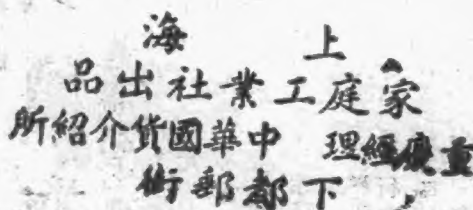 上海
家庭工業社出品
重慶經理 中華國貨介紹所
下都郵街